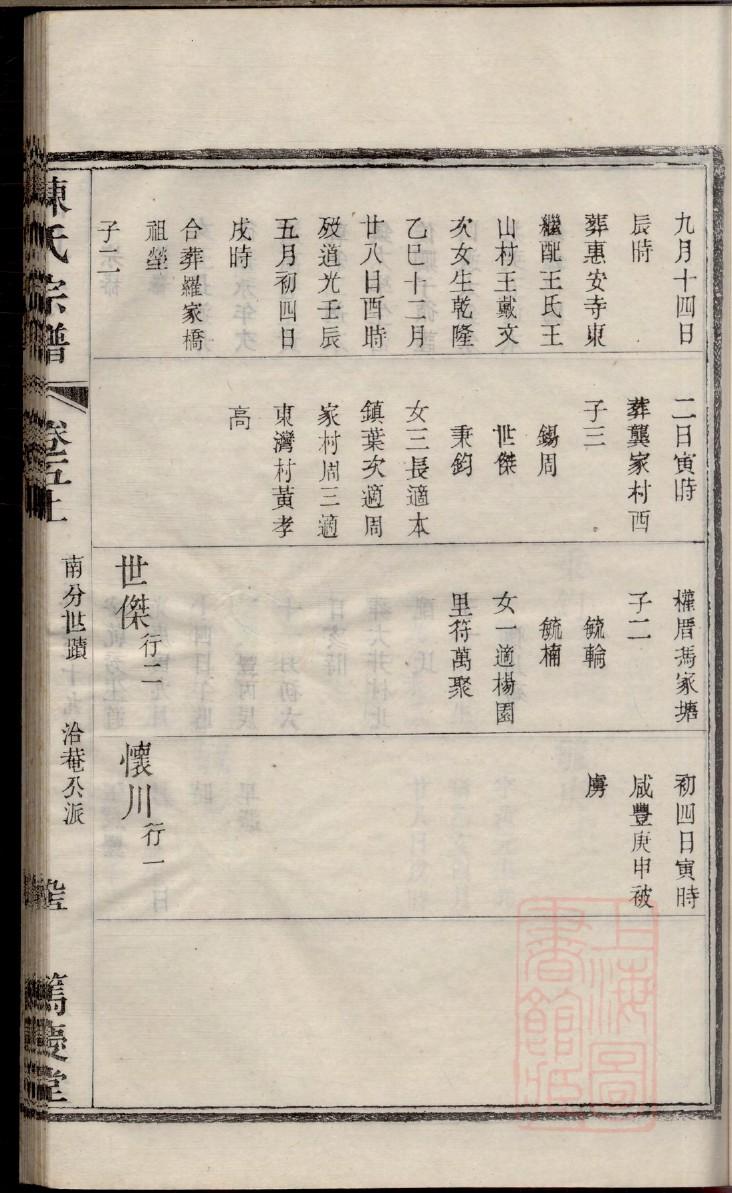 九月十四日
辰時
葬惠安寺東
繼配王氏王
山村王戴文
次女生乾隆
乙巳十二月
廿八日酉時
歿道光壬辰
五月初四日
戌時
合葬羅家橋
祖塋
子二
二日寅時
葬龔家村西
子三
錫周
世傑
秉鈞
女三長適本
鎮葉次適周
家村周三適
東灣村黃孝
高
權厝馮家塘
子二
毓輪
毓楠
女一適楊園
里符萬聚
世傑行二
初四日寅時
咸豐庚申被
虜
懷川行一
陳氏宗譜
卷五上
南分世蹟十九 洽菴公派
篤慶堂
上海圖
書館藏